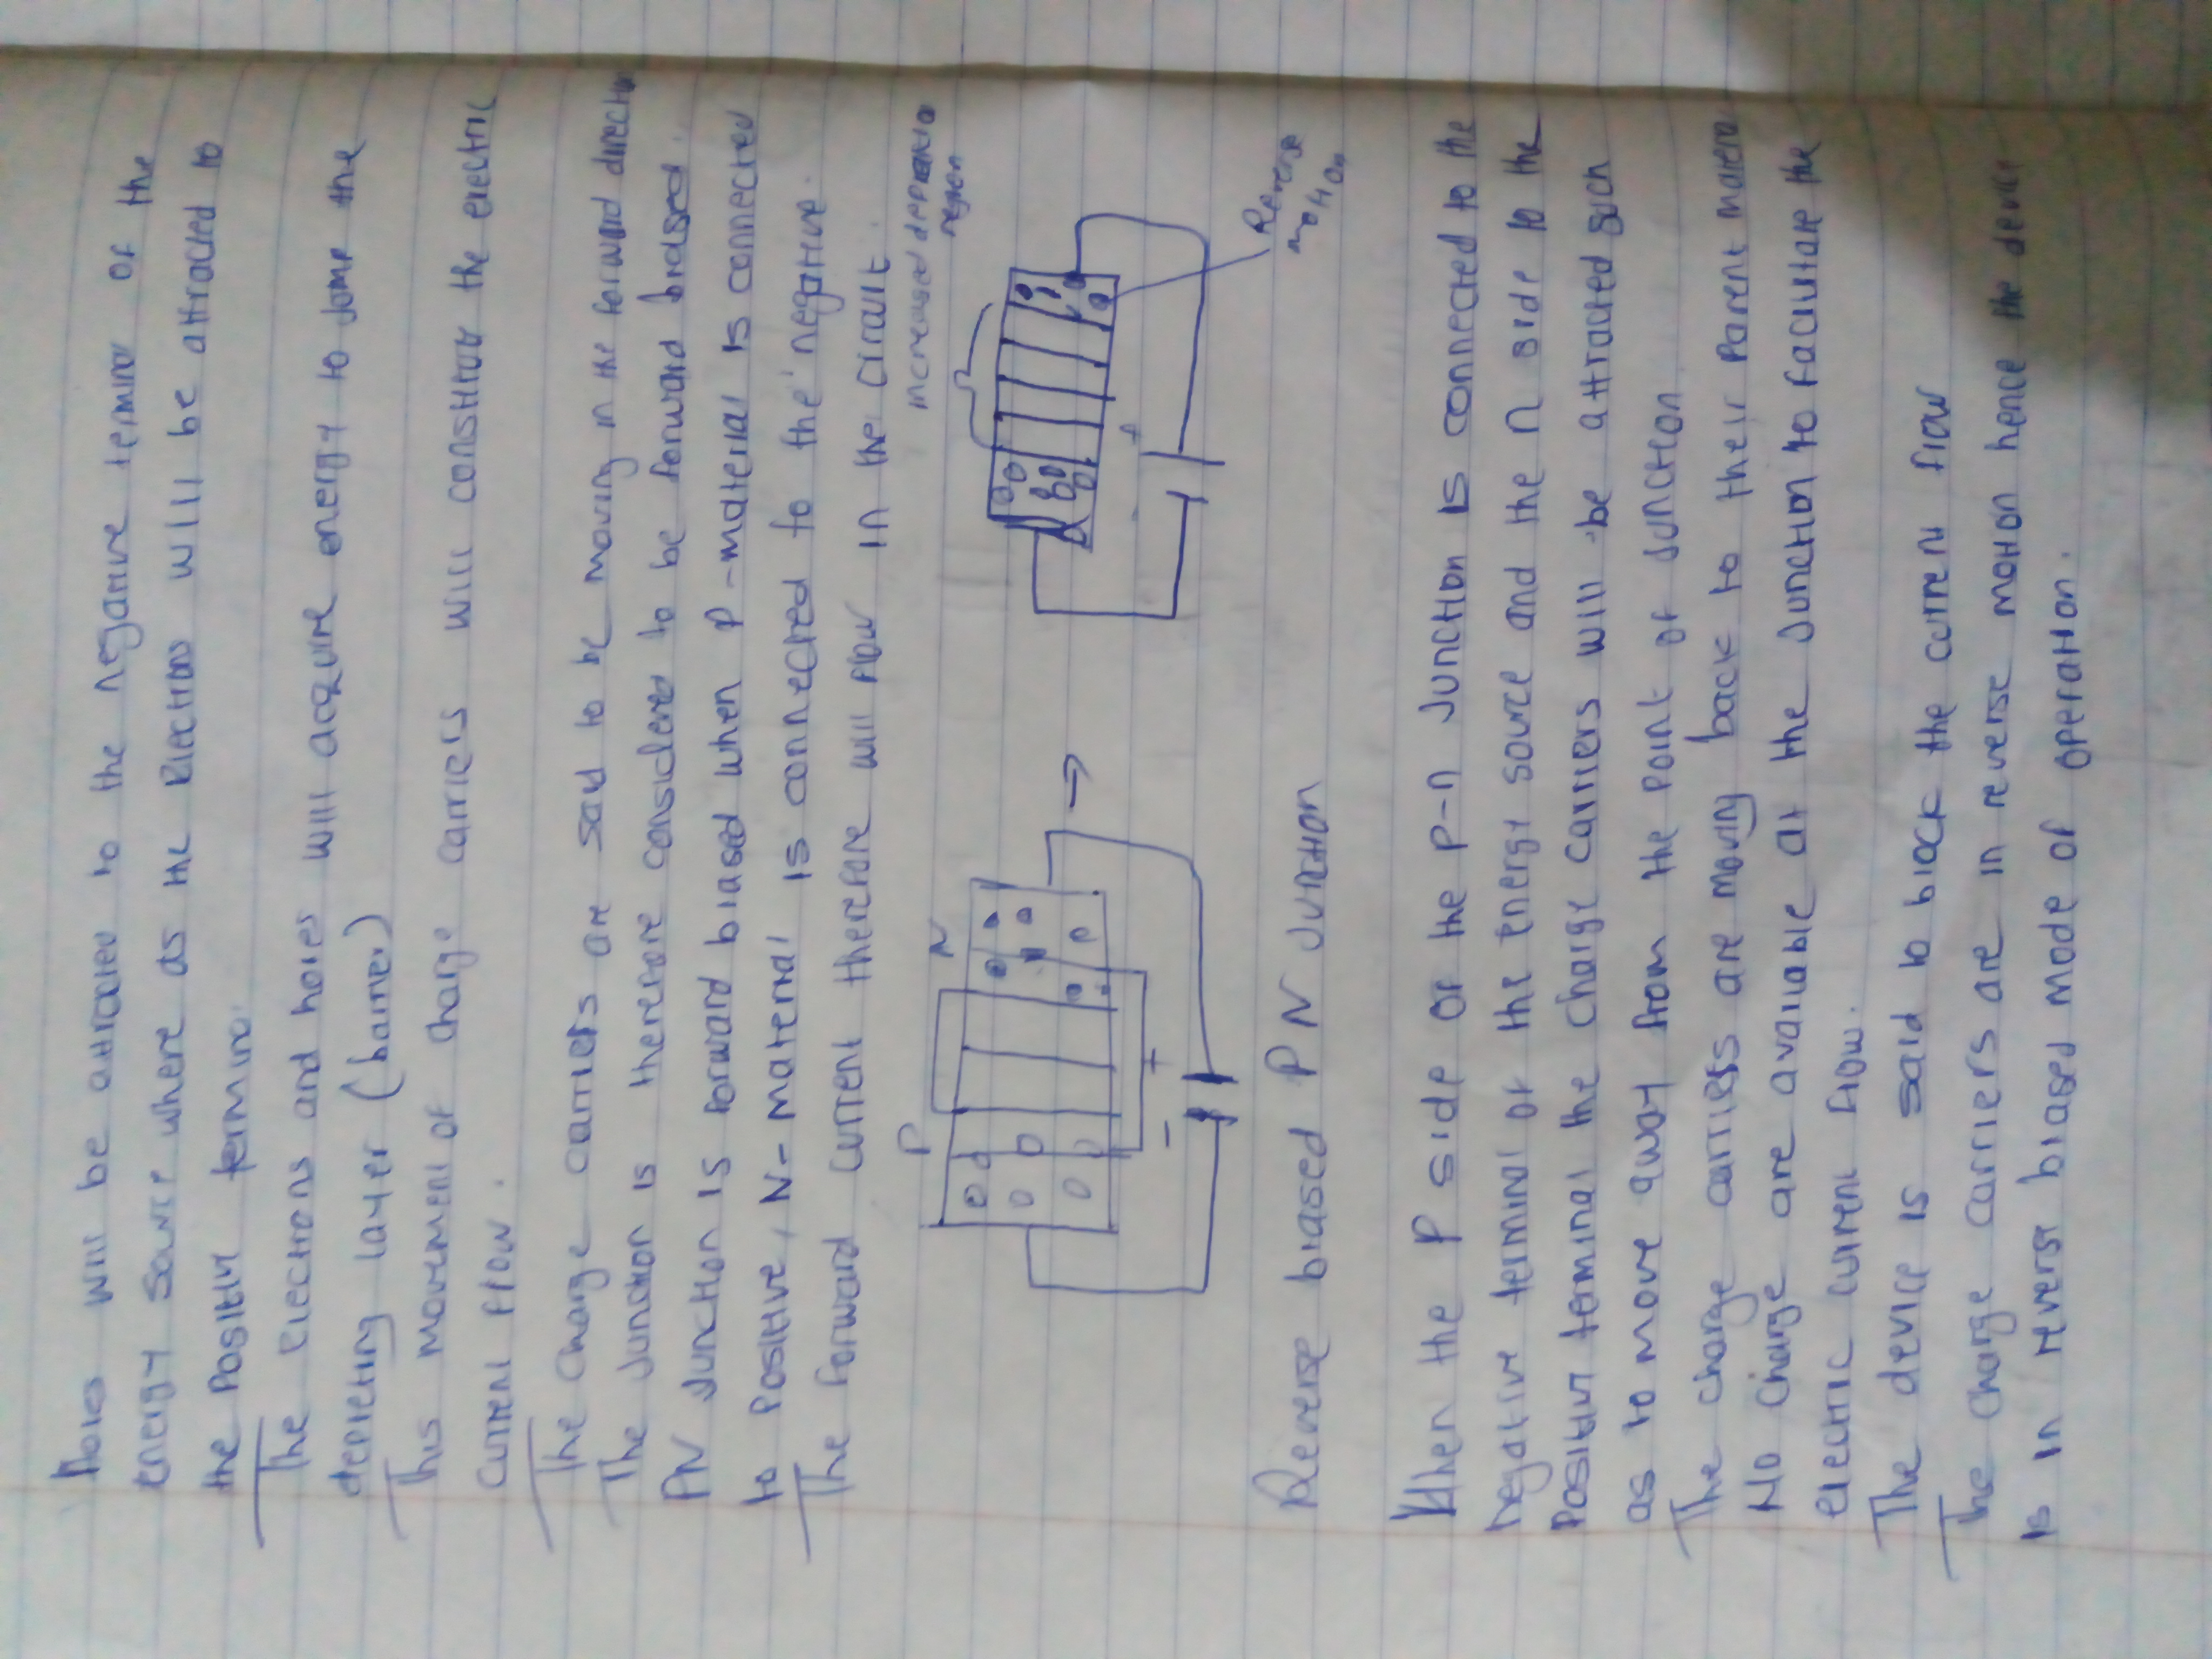 Holes will be attracted to the negative terminal of the
energy source where as the Electrons will be attracted to
the positive terminal
The electrons and holes will acquire energy to jump the
depleting layer (barrier)
This movement of charge carriers will constitute the electric
current flow.
The charge carriers are said to be moving in the forward direction
The Junction is therefore considered to be forward biased.
PN Junction is forward biased when P-material is connected
to positive, N-material is connected to the negative.
The forward current therefore will flow in the circuit.
P
N
increased depletion
region
- +
- +
Reverse
motion
Reverse biased PN Junction
When the P side of the p-n Junction is connected to the
negative terminal of the energy source and the n side to the
Positive terminal the charge carriers will be attracted such
as to move away from the point of Junction
The charge carriers are moving back to their parent material
No charge are available at the Junction to facilitate the
electric current flow.
The device is said to block the current flow
The charge carriers are in reverse motion hence the device
is in reverse biased mode of operation.